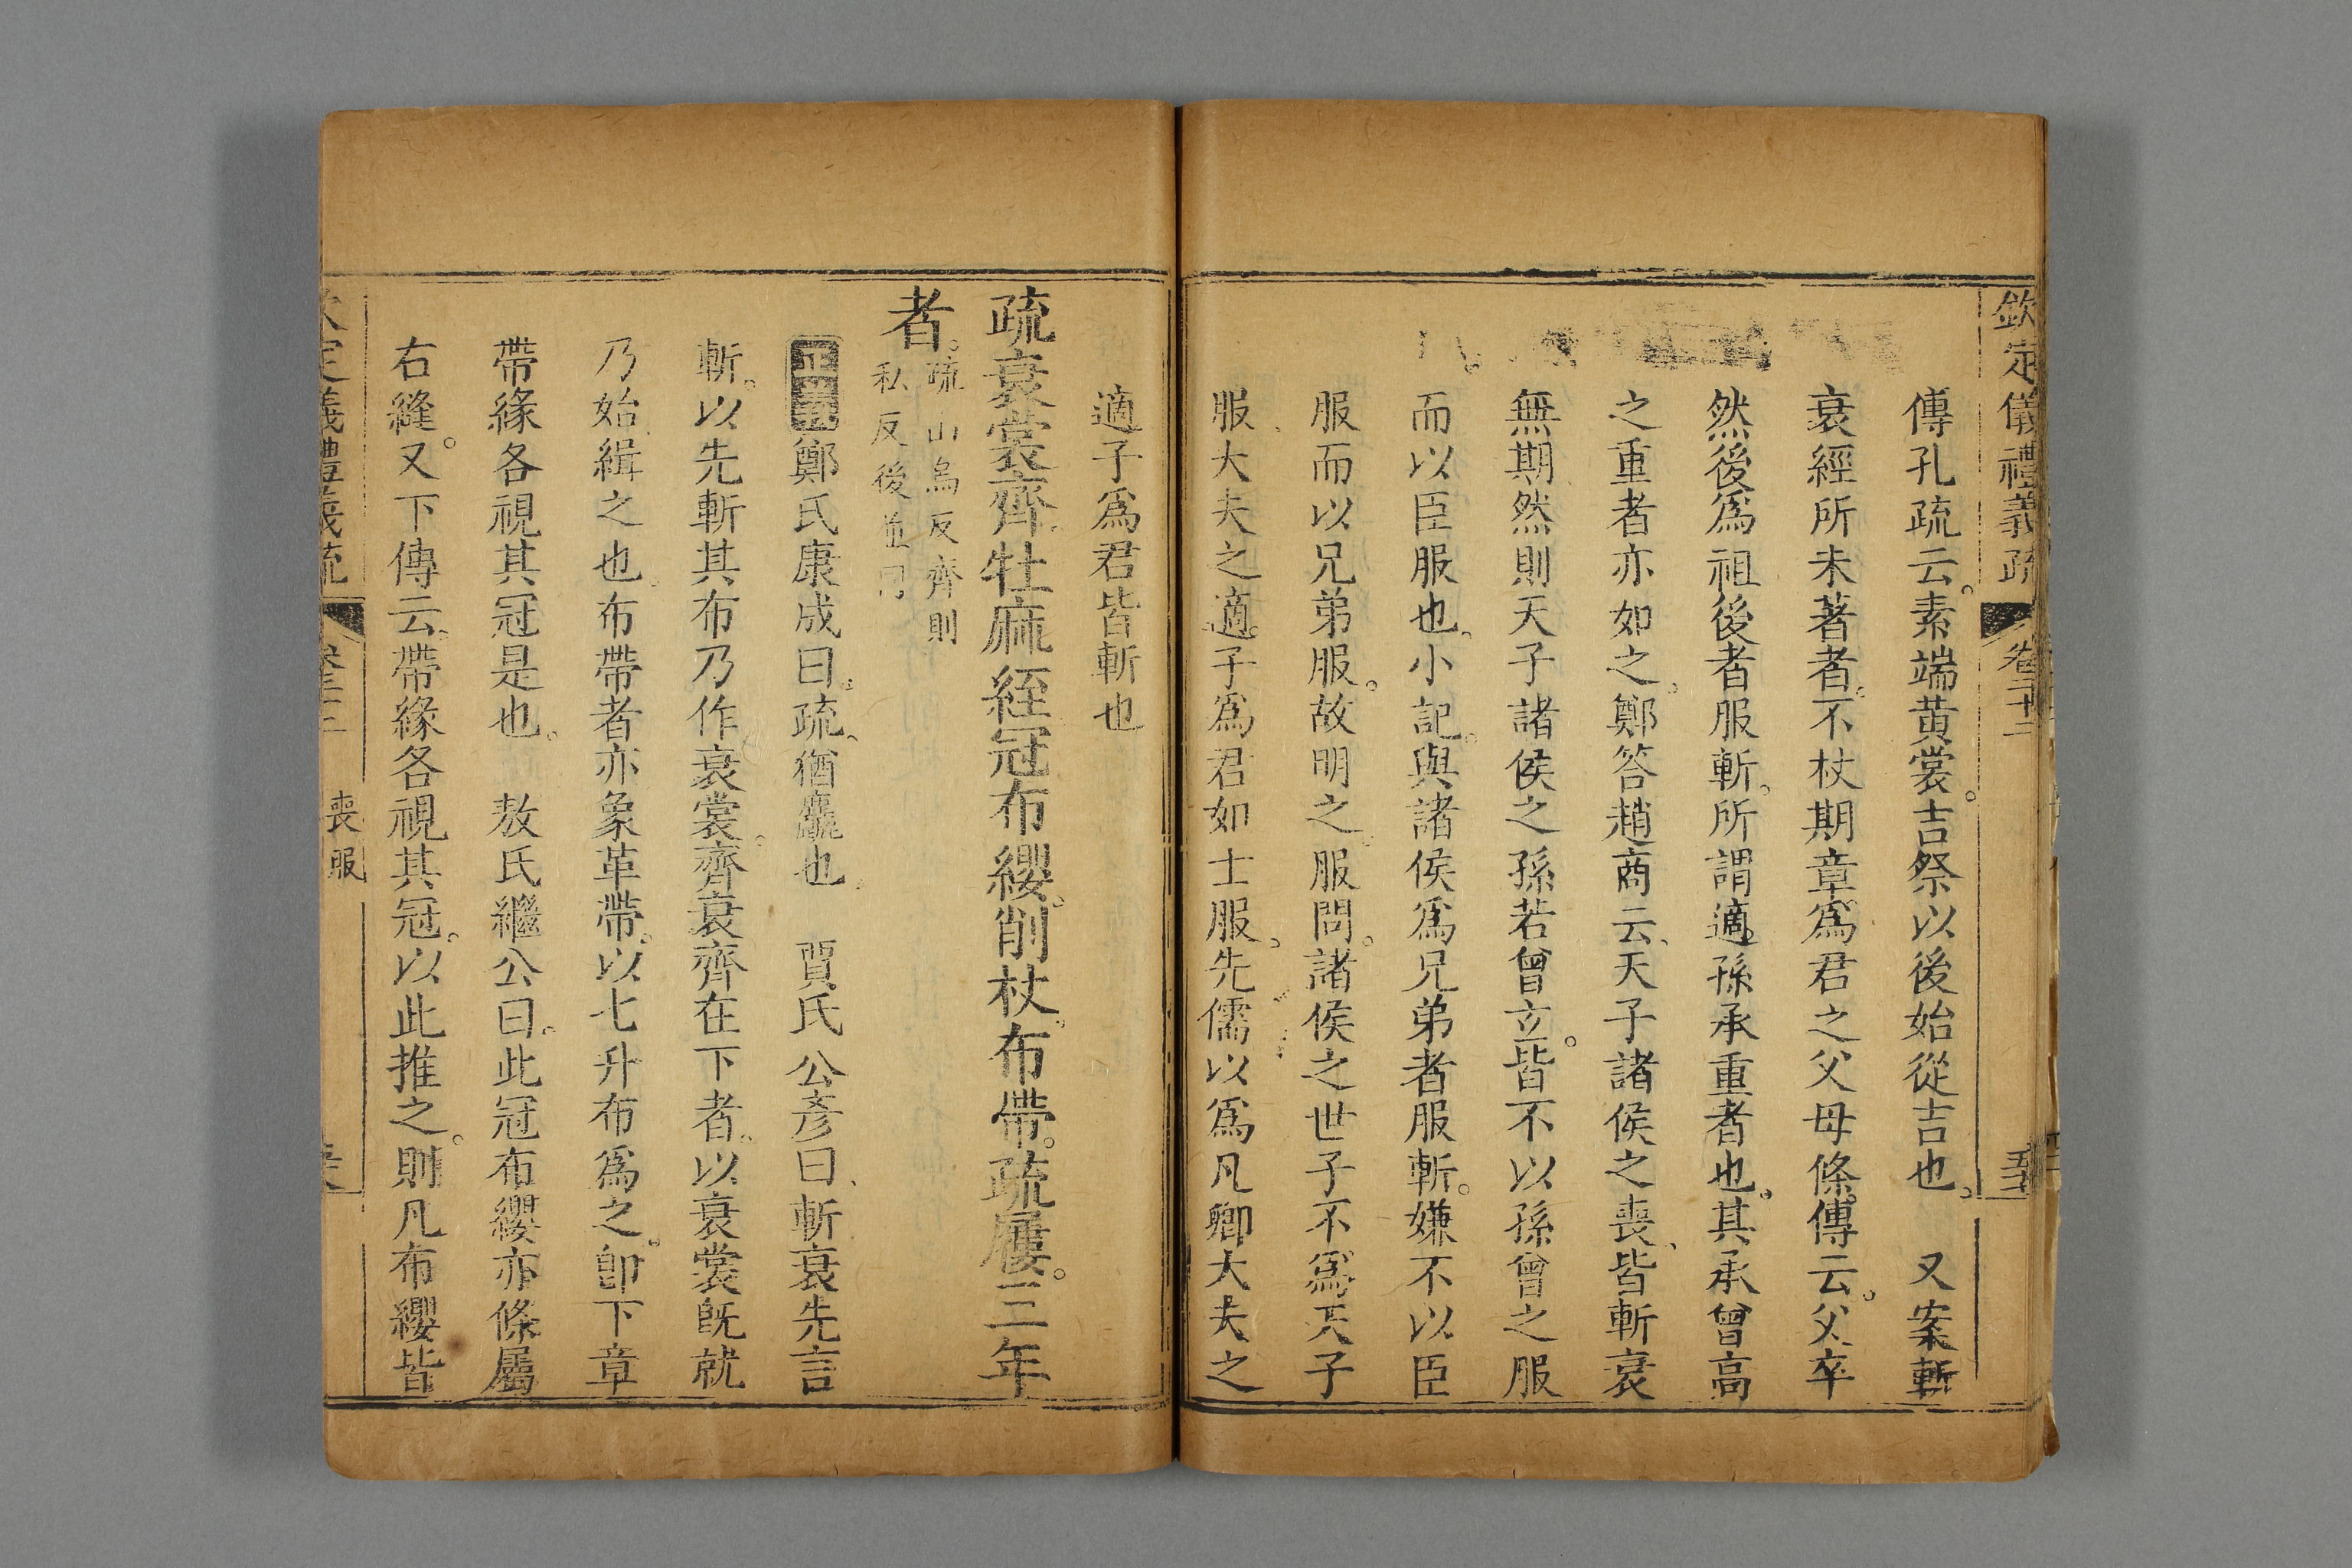 欽定儀禮義疏 卷二十二
傳孔疏云。素端黃裳。吉祭以後始從吉也。 又案斬
衰經所未著者。不杖期章爲君之父母條。傳云。父卒
然後爲祖後者服斬。所謂適孫承重者也。其承曾高
之重者亦如之。鄭答趙商云、天子諸侯之喪、皆斬衰
無期。然則天子諸侯之孫若曾立。皆不以孫曾之服
而以臣服也。小記。與諸侯爲兄弟者服斬。嫌不以臣
服而以兄弟服。故明之。服問。諸侯之世子不爲天子
服、大夫之適子爲君如士服。先儒以爲凡卿大夫之
適子爲君皆斬也
疏衰裳齊、牡麻絰、冠布纓。削杖、布帶。疏屨。三年
者。疏山烏反齊則私反後並同
正義鄭氏康成曰。疏、猶麤也、 賈氏公彥曰、斬衰先言
斬。以先斬其布乃作衰裳。齊衰齊在下者、以衰裳旣就
乃始緝之也。布帶者亦象革帶。以七升布爲之。卽下章
帶緣各視其冠是也。 敖氏繼公曰。此冠布纓亦條屬
右縫。又下傳云。帶緣各視其冠。以此推之。則凡布纓皆
喪服